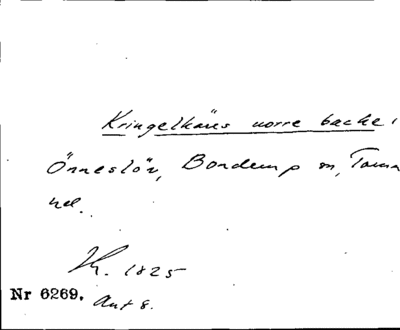 Kringelkärs norre backe,
Önneslöv, Bonderup sn, Torna
hd.
K. 1825
Nr 6269. Ant 8.